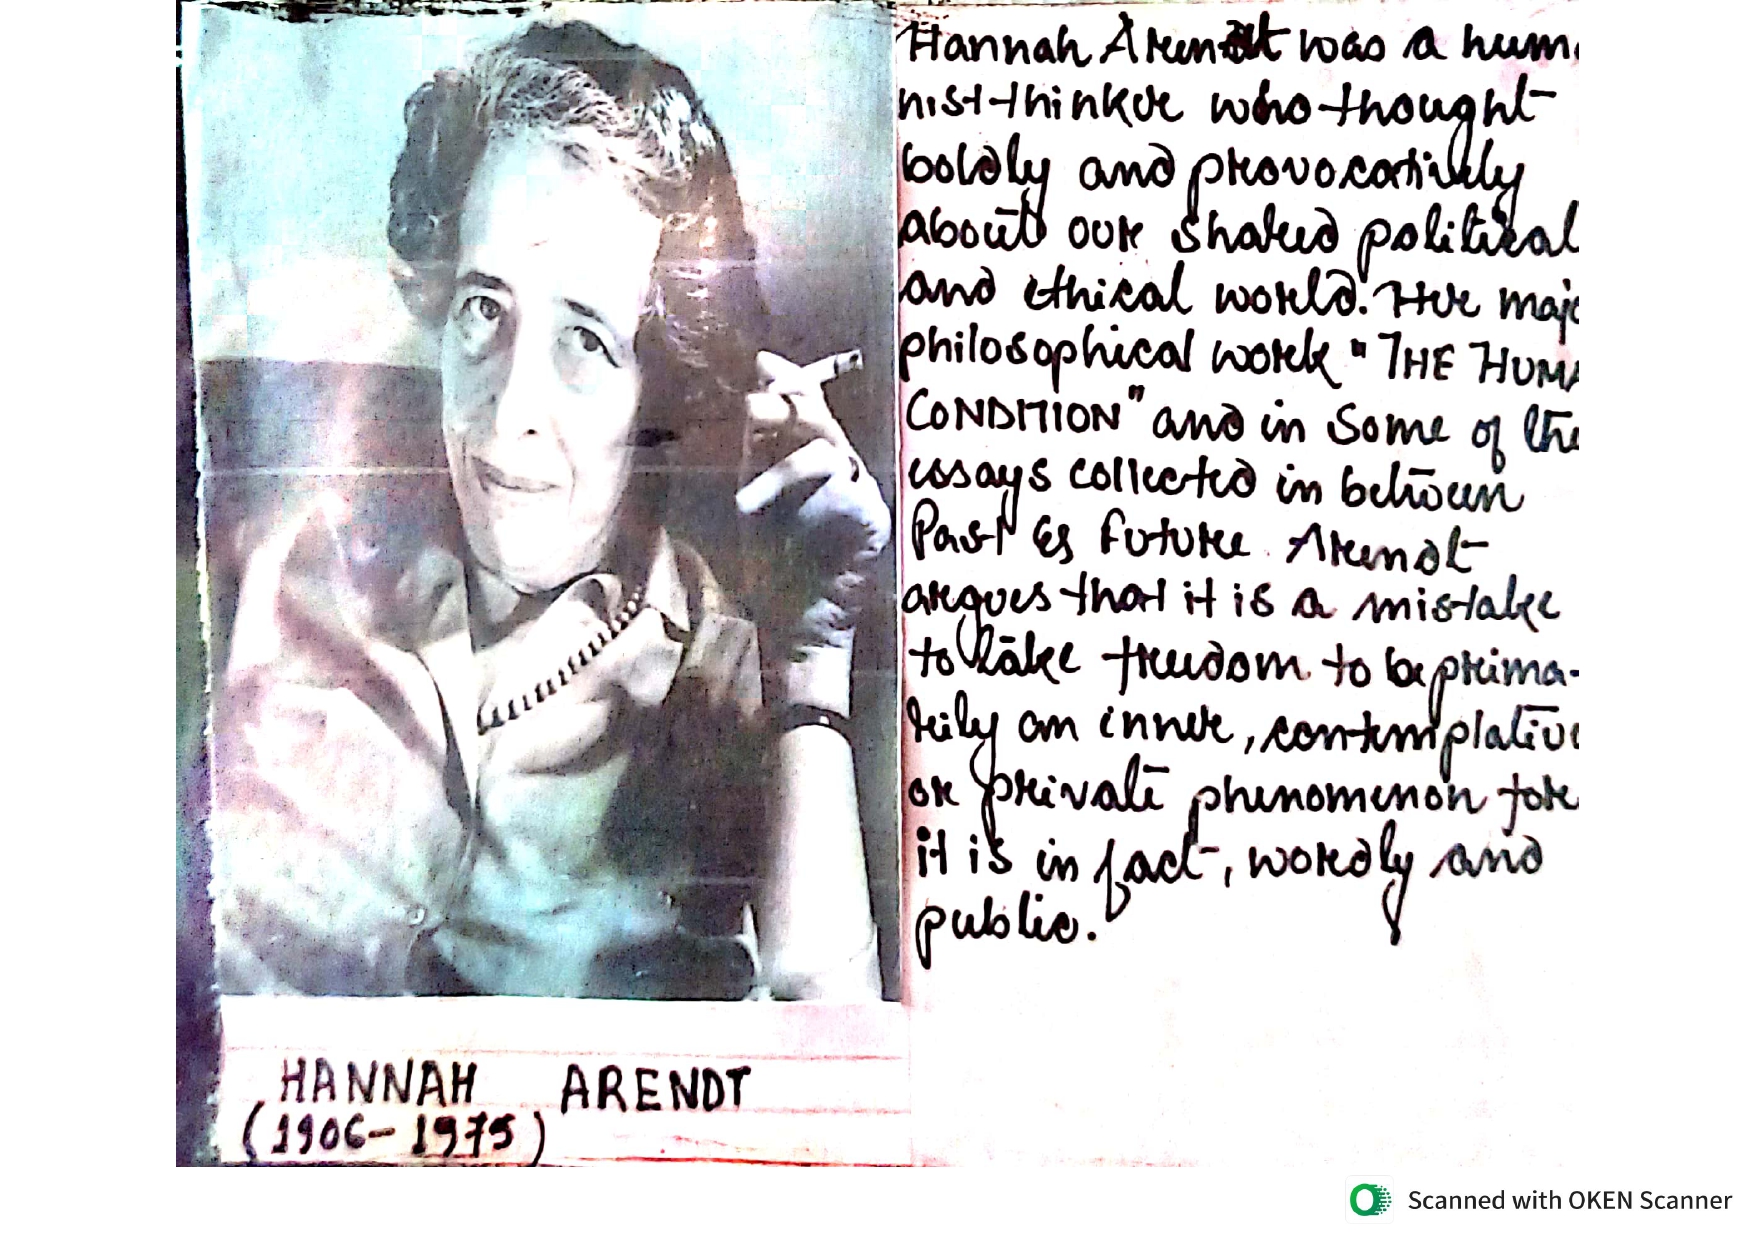 Hannah Arendt was a hum
nist thinker who thought
boldly and provocatively
about our shared political
and ethical world. Her majo
philosophical work "THE HUMA
CONDITION" and in some of the
essays collected in between
Past & Future Arendt
argues that it is a mistake
to take freedom to be prima-
rily an inner, contemplative
or private phenomenon for
it is in fact, wordly and
public.
HANNAH ARENDT
(1906-1975)
Scanned with OKEN Scanner